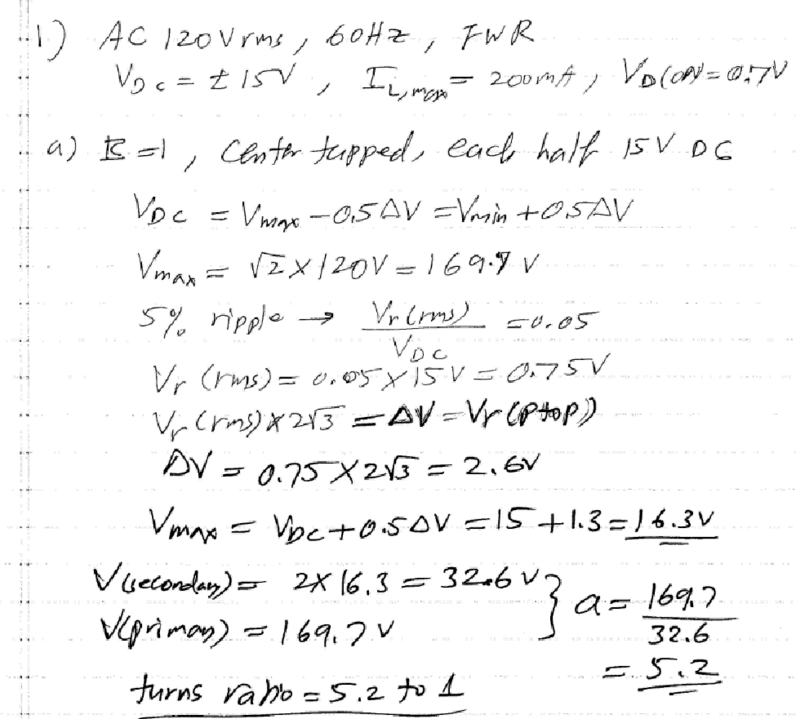 1) AC 120Vrms, 60Hz, FWR
VDC = ± 15V, IL,max = 200mA, VD(ON) = 0.7V
a) K=1, Center tapped, each half 15V DC
VDC = Vmax - 0.5ΔV = Vmin + 0.5ΔV
Vmax = √2 x 120V = 169.7 V
5% ripple → Vr(rms) / VDC = 0.05
Vr (rms) = 0.05 x 15V = 0.75V
Vr (rms) x 2√3 = ΔV = Vr (PtoP)
ΔV = 0.75 x 2√3 = 2.6V
Vmax = VDC + 0.5ΔV = 15 + 1.3 = 16.3V
V(secondary) = 2x 16.3 = 32.6V } a = 169.7 / 32.6
V(primary) = 169.7V
= 5.2
turns ratio = 5.2 to 1